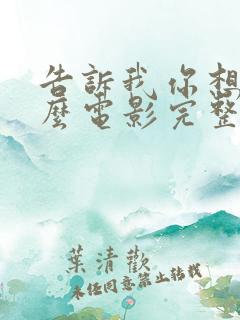 告訴我你想
麼電影完整
葉清歡
未任同意禁止转载